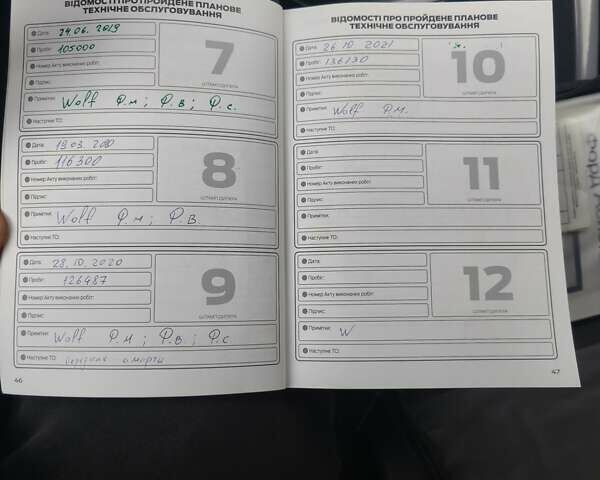 ВІДОМОСТІ ПРО ПРОЙДЕНЕ ПЛАНОВЕ
ТЕХНІЧНЕ ОБСЛУГОВУВАННЯ
Дата: 24.06.2019
Пробіг: 105000
Номер Акту виконаних робіт:
Підпис:
7
ШТАМП ДИЛЕРА
Примітки: Wolf Ф.м; Ф.в; Ф.с.
Наступне ТО:
Дата:
Пробіг: 116300
Номер Акту виконаних робіт:
Підпис:
8
ШТАМП ДИЛЕРА
Примітки: Wolf Ф.м; Ф.в.
Наступне ТО:
Дата: 28.10.2020
Пробіг: 126487
Номер Акту виконаних робіт:
Підпис:
9
ШТАМП ДИЛЕРА
Примітки: Wolf Ф.м; Ф.в.; Ф.с
Наступне ТО:
46
ВІДОМОСТІ ПРО ПРОЙДЕНЕ ПЛАНОВЕ
ТЕХНІЧНЕ ОБСЛУГОВУВАННЯ
Дата: 26.10.2021
Пробіг: 136130
Номер Акту виконаних робіт:
Підпис:
10
ШТАМП ДИЛЕРА
Примітки: Wolf Ф.м.
Наступне ТО:
Дата:
Пробіг:
Номер Акту виконаних робіт:
Підпис:
11
ШТАМП ДИЛЕРА
Примітки:
Наступне ТО:
Дата:
Пробіг:
Номер Акту виконаних робіт:
Підпис:
12
ШТАМП ДИЛЕРА
Примітки: W
Наступне ТО:
47